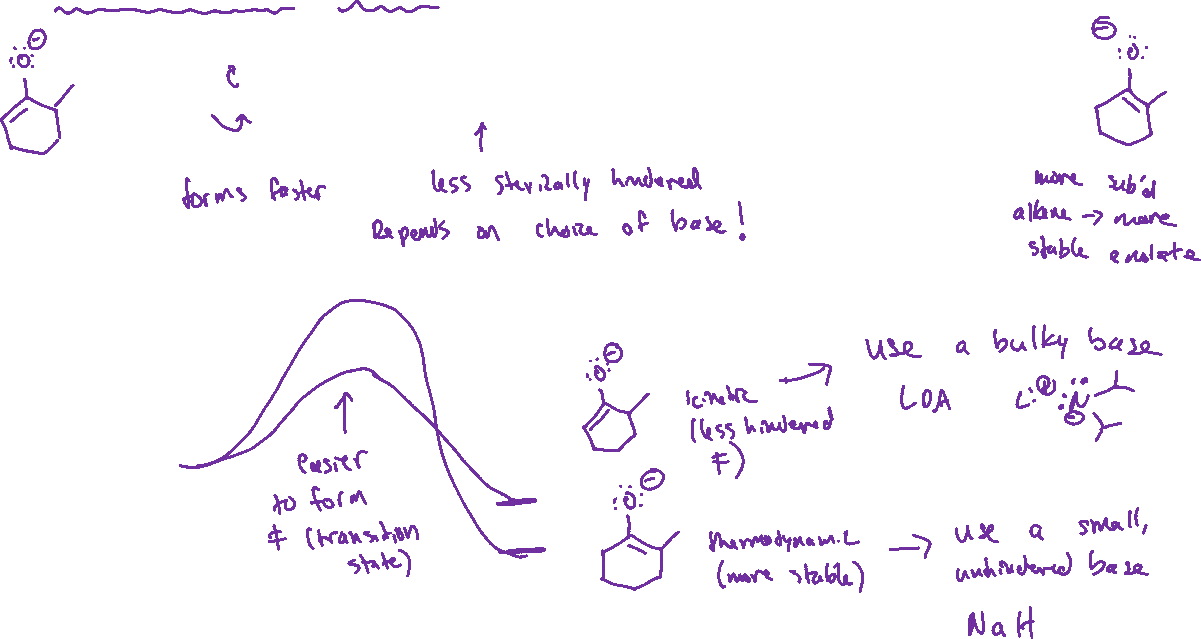 forms faster
less sterically hindered
Depends on choice of base!
more sub'd
alkene → more
stable enolate
easier
to form
‡ (transition
state)
kinetic
(less hindered
‡)
use a bulky base
LDA
Li ⊕ :N̈ ⊖
:Ö: ⊖
thermodynamic
(more stable)
use a small,
unhindered base
NaH